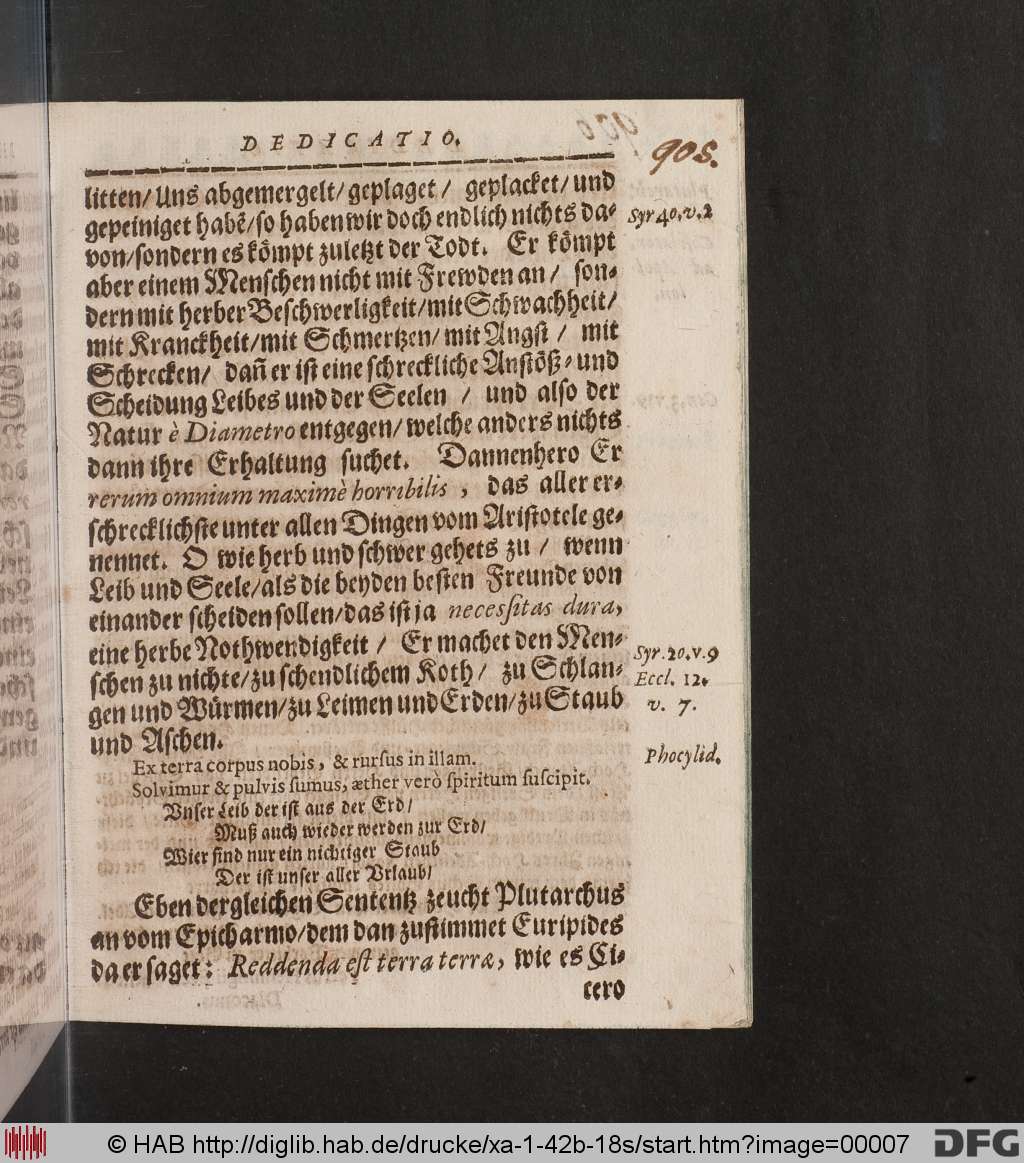 DEDICATIO.
905.
litten/Uns abgemergelt/geplaget/ geplacket/und
gepeiniget habẽ/so haben wir doch endlich nichts da-
Syr 40. v. 2
von/sondern es kömpt zuletzt der Todt. Er kömpt
aber einem Menschen nicht mit Frewden an/ son-
dern mit herber Beschwerligkeit/mit Schwachheit/
mit Kranckheit/mit Schmertzen/mit Angst/ mit
Schrecken/ dañ er ist eine schreckliche Anstöß- und
Scheidung Leibes und der Seelen / und also der
Natur è Diametro entgegen/welche anders nichts
dann ihre Erhaltung suchet. Dannenhero Er
rerum omnium maximè horribilis, das aller er-
schrecklichste unter allen Dingen vom Aristotele ge-
nennet. O wie herb und schwer gehets zu / wenn
Leib und Seele/als die beyden besten Freunde von
einander scheiden sollen/das ist ja necessitas dura,
eine herbe Nothwendigkeit / Er machet den Men-
Syr. 20. v. 9
schen zu nichte/zu schendlichem Koth/ zu Schlan-
Eccl. 12.
gen und Würmen/zu Leimen und Erden/zu Staub
v. 7.
und Aschen.
Ex terra corpus nobis, & rursus in illam.
Phocylid.
Solvimur & pulvis sumus, æther verò spiritum suscipit.
Vnser Leib der ist aus der Erd/
Muß auch wieder werden zur Erd/
Wier sind nur ein nichtiger Staub
Der ist unser aller Vrlaub/
Eben dergleichen Sententz zeucht Plutarchus
an vom Epicharmo/dem dan zustimmet Euripides
da er saget: Reddenda est terra terræ, wie es Ci-
cero
© HAB http://diglib.hab.de/drucke/xa-1-42b-18s/start.htm?image=00007
DFG